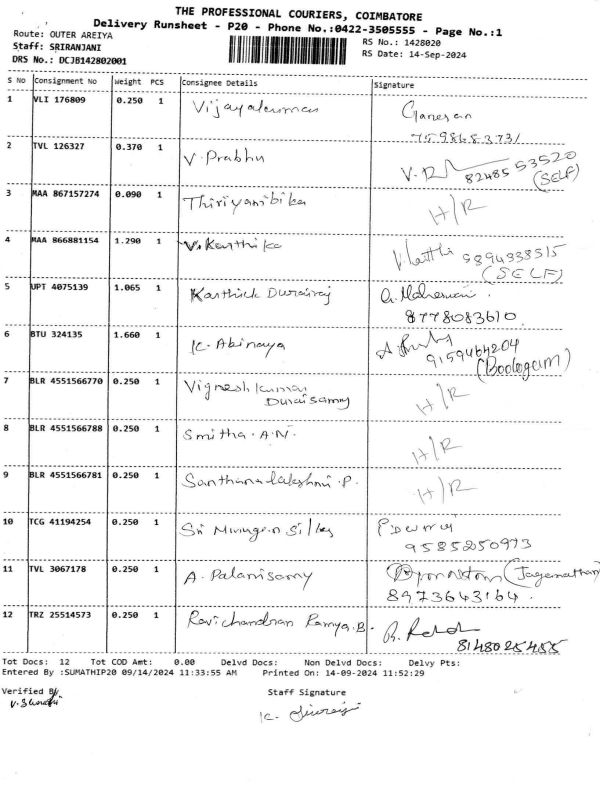 THE PROFESSIONAL COURIERS, COIMBATORE
Delivery Runsheet - P20 - Phone No.:0422-3505555 - Page No.:1
Route: OUTER AREIYA
RS No.: 1428020
Staff: SRIRANJANI
RS Date: 14-Sep-2024
DRS No.: DCJB142802001
S No Consignment No Weight PCS Consignee Details Signature
1 VLI 176809 0.250 1 Vijayakumar Ganesan
7598683731
2 TVL 126327 0.370 1 V. Prabhu 82485 53520
(SELF)
3 MAA 867157274 0.090 1 Thiriyambika H/R
4 MAA 866881154 1.290 1 V. Karthika 9894338515
(SELF)
5 UPT 4075139 1.065 1 Karthick Durairaj
8778083610
6 BTU 324135 1.660 1 K. Abinaya
9159464204
(Boologam)
7 BLR 4551566770 0.250 1 Vignesh kumar H/R
Duraisamy
8 BLR 4551566788 0.250 1 Smitha. A.N. H/R
9 BLR 4551566781 0.250 1 Santhanalakshmi. P. H/R
10 TCG 41194254 0.250 1 Sri Murugan Silks
9585250973
11 TVL 3067178 0.250 1 A. Palanisamy (Jagannathan)
8973643164
12 TRZ 25514573 0.250 1 Ravichandran Ramya. B.
8148025455
Tot Docs: 12 Tot COD Amt: 0.00 Delvd Docs: Non Delvd Docs: Delvy Pts:
Entered By :SUMATHIP20 09/14/2024 11:33:55 AM Printed On: 14-09-2024 11:52:29
Verified By Staff Signature